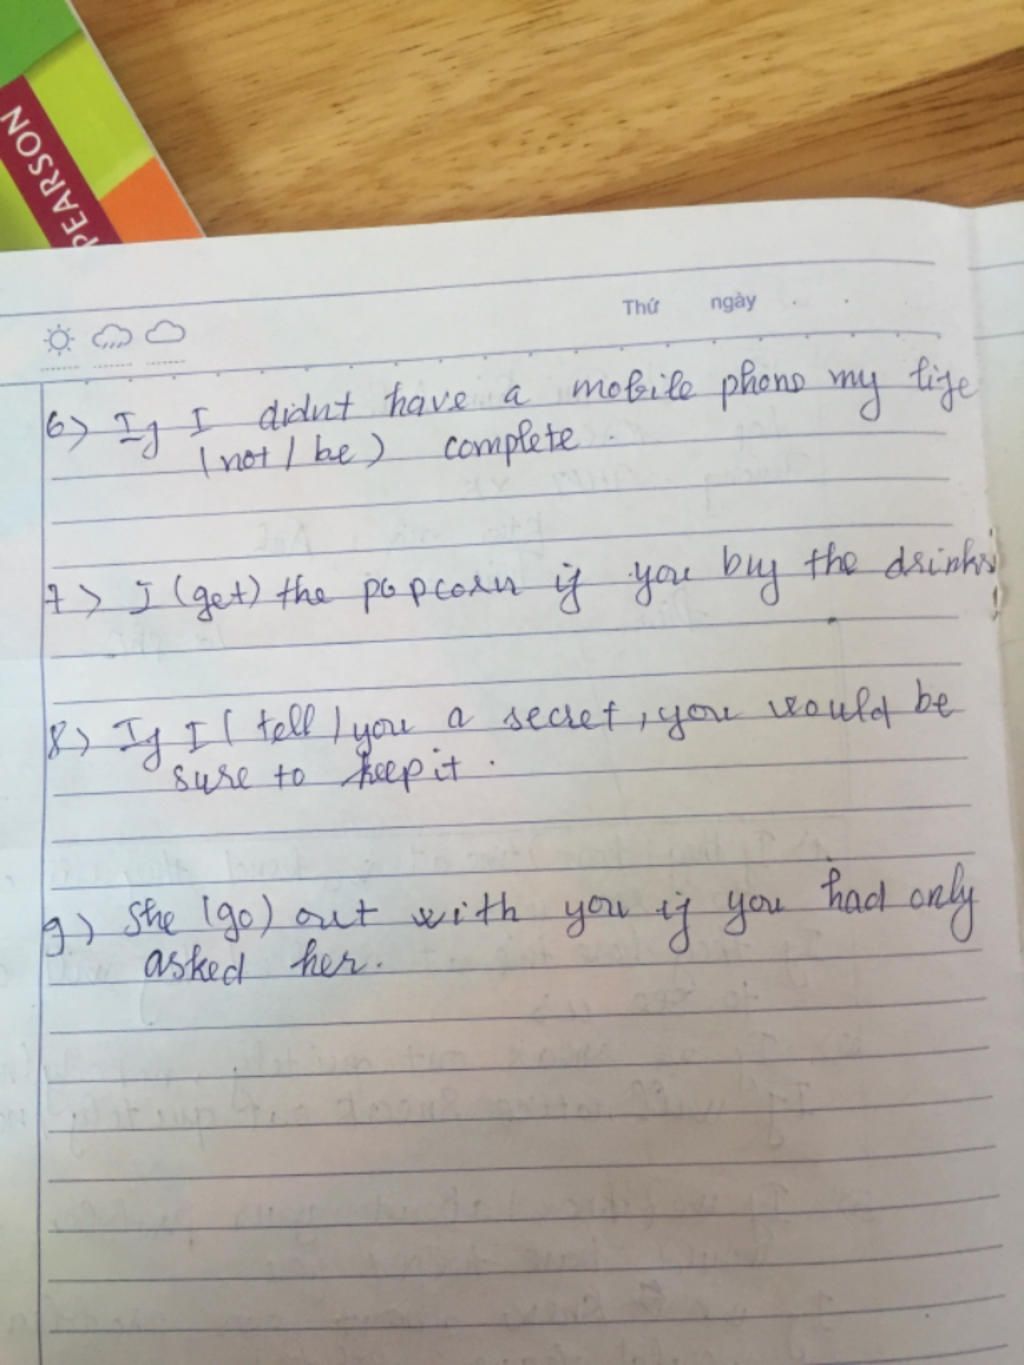 PEARSON
Thứ ngày
6) If I didnt have a mobile phone my life
(not / be) complete.
7) I (get) the popcorn if you buy the drinks
8) If I (tell) you a secret, you would be
sure to keep it.
9) She (go) out with you if you had only
asked her.